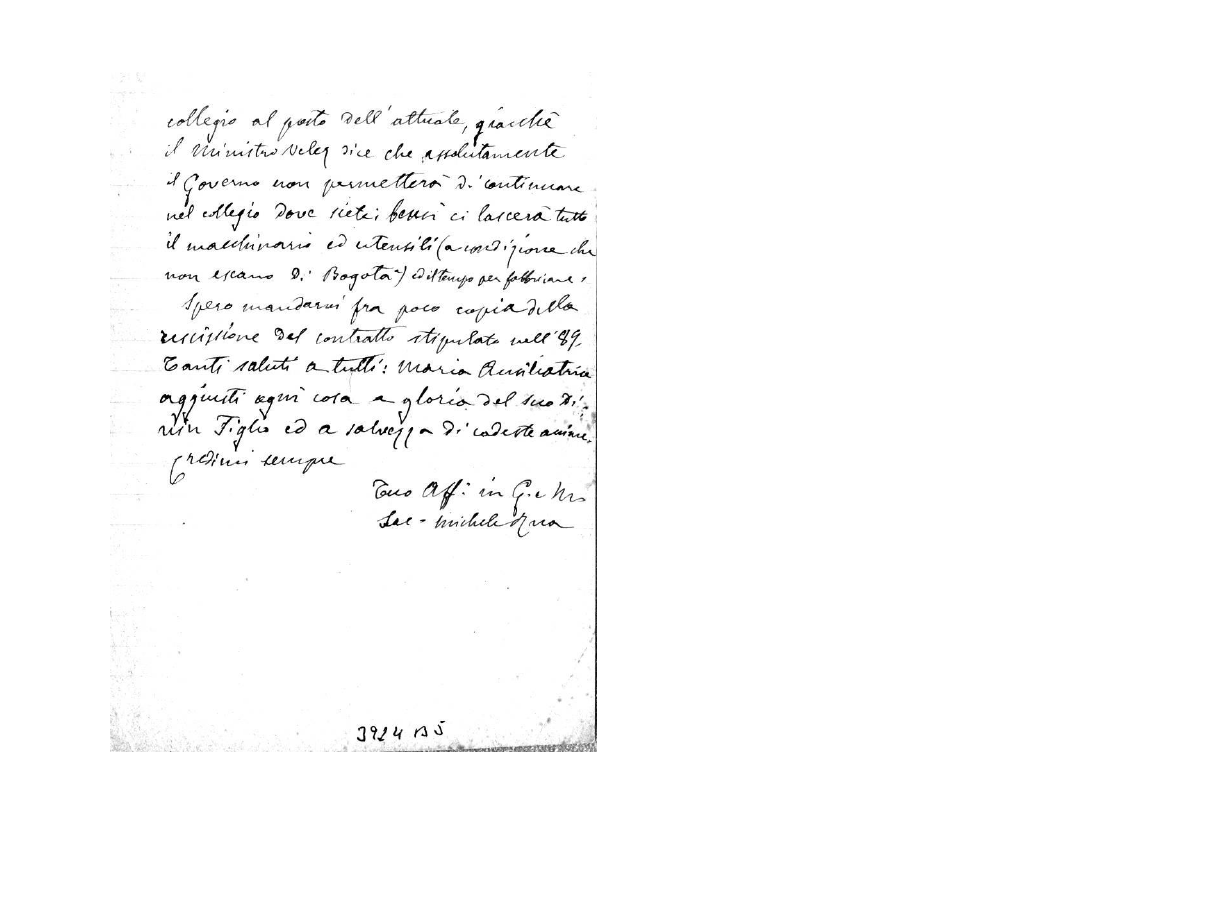 collegio al posto dell'attuale, giacchè
il Ministro Velez dice che assolutamente
il Governo non permetterà di continuare
nel collegio dove siete; bensì ci lascerà tutto
il macchinario ed utensili (a condizione che
non escano di Bogotà) ed il tempo per fabbricare.
Spero mandarvi fra poco copia della
rescissione del contratto stipulato nell'89.
Tanti saluti a tutti: Maria Ausiliatrice
aggiusti ogni cosa a gloria del suo Di-
vin Figlio ed a salvezza di codeste anime.
Credimi sempre
Tuo Aff: in G. e M.
Sac. Michele Rua
3924 B5